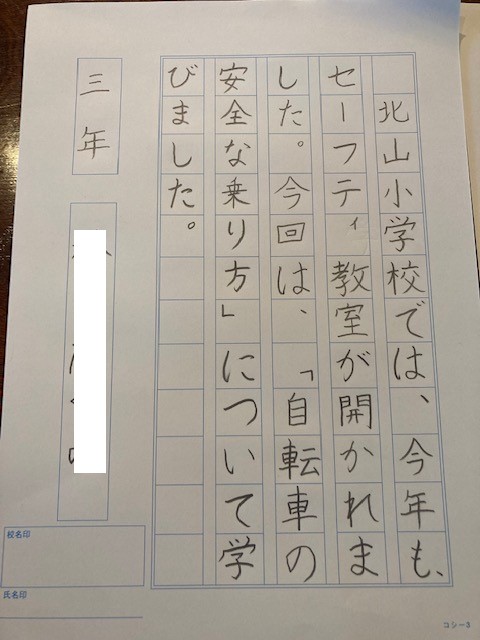 北山小学校では、今年も、
セーフティ教室が開かれま
した。今回は、「自転車の
安全な乗り方」について学
びました。
三年
校名印
氏名印
コシー3